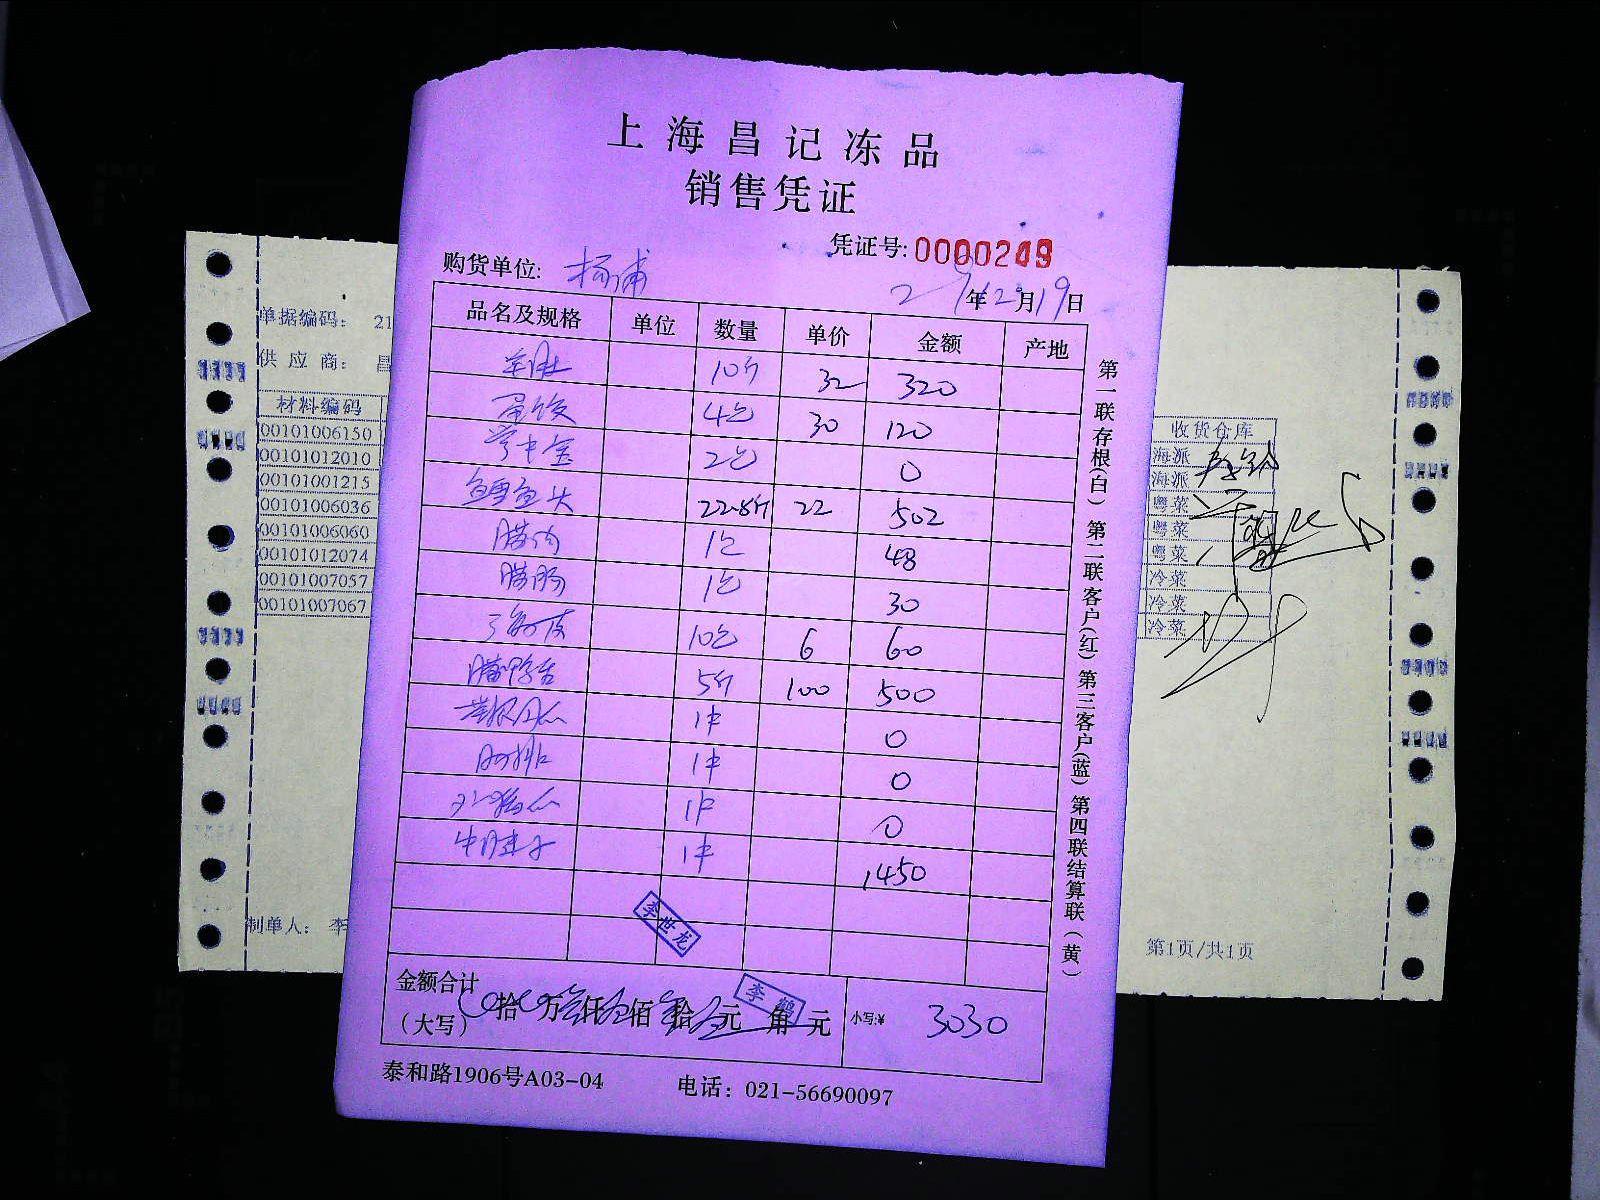 上海昌记冻品
销售凭证
凭证号: 0000249
购货单位: 杨浦
年12月19日
品名及规格 单位 数量 单价 金额 产地
羊肚 10斤 32 320
4包 30 120
2包 0
鱼头 22.8斤 22 502
腊肉 1包 48
腊肠 1包 30
10包 6 60
腊鸭舌 5斤 100 500
1件 0
1件 0
1件 0
牛腱子 1件 1450
李世龙
金额合计
(大写) 拾 万 仟 佰 拾 元 角 元 小写:¥ 3030
李鹤
泰和路1906号A03-04 电话: 021-56690097
第一联存根(白) 第二联客户(红) 第三客户(蓝) 第四联结算联(黄)
单据编码: 21
供应商: 昌
材料编码
00101006150
00101012010
00101001215
00101006036
00101006060
00101012074
00101007057
00101007067
制单人: 李
收货仓库
海派
海派
粤菜
粤菜
粤菜
冷菜
冷菜
冷菜
第1页/共1页